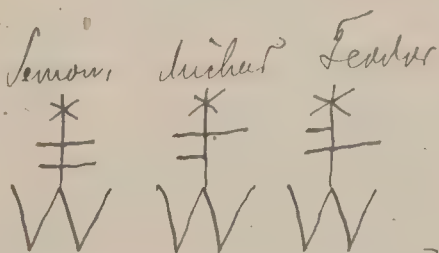 Semon, Michas Feodor